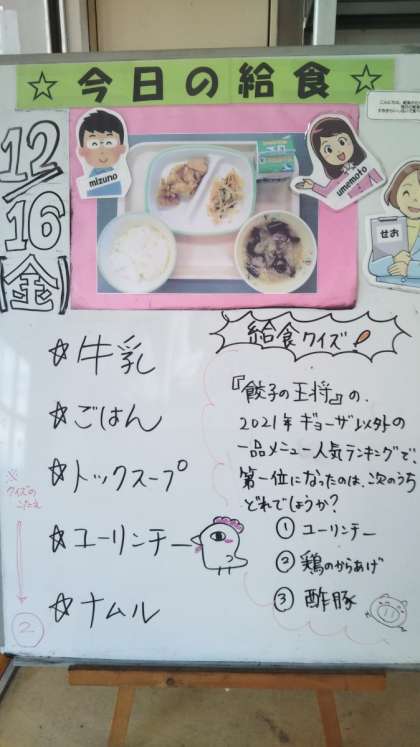 ☆今日の給食☆
mizuno
umemoto
せお
12/16(金)
☆牛乳
☆ごはん
☆トックスープ
☆ユーリンチー
☆ナムル
給食クイズ!
『餃子の王将』の、
2021年ギョーザ以外の
一品メニュー人気ランキングで、
第一位になったのは、次のうち
どれでしょうか?
① ユーリンチー
② 鶏のからあげ
③ 酢豚
※クイズの
こたえ
②